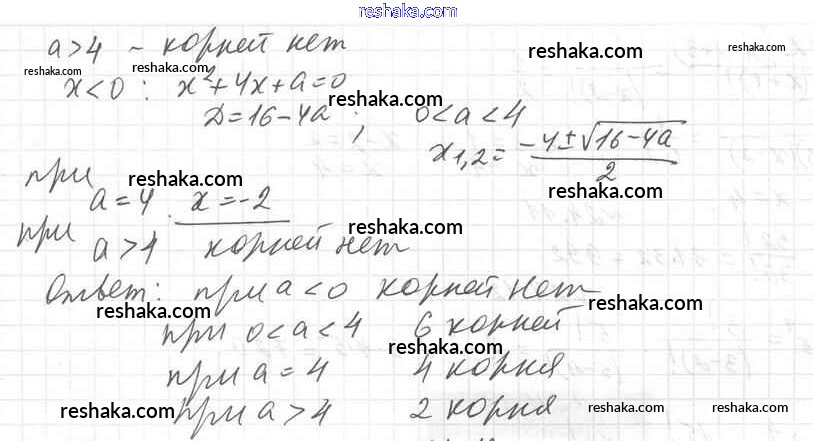 reshaka.com
a>4 – корней нет
reshaka.com reshaka.com reshaka.com reshaka.com
x<0 : x²+4x+a=0
reshaka.com reshaka.com
D=16-4a ; 0<a<4
x₁,₂= (-4±√16-4a)/2
при reshaka.com reshaka.com
a=4 . x=-2
при a>4 корней нет
reshaka.com reshaka.com
Ответ: при a<0 корней нет
reshaka.com reshaka.com
при 0<a<4 6 корней
reshaka.com
при a=4 4 корня
reshaka.com при a>4 2 корня reshaka.com reshaka.com